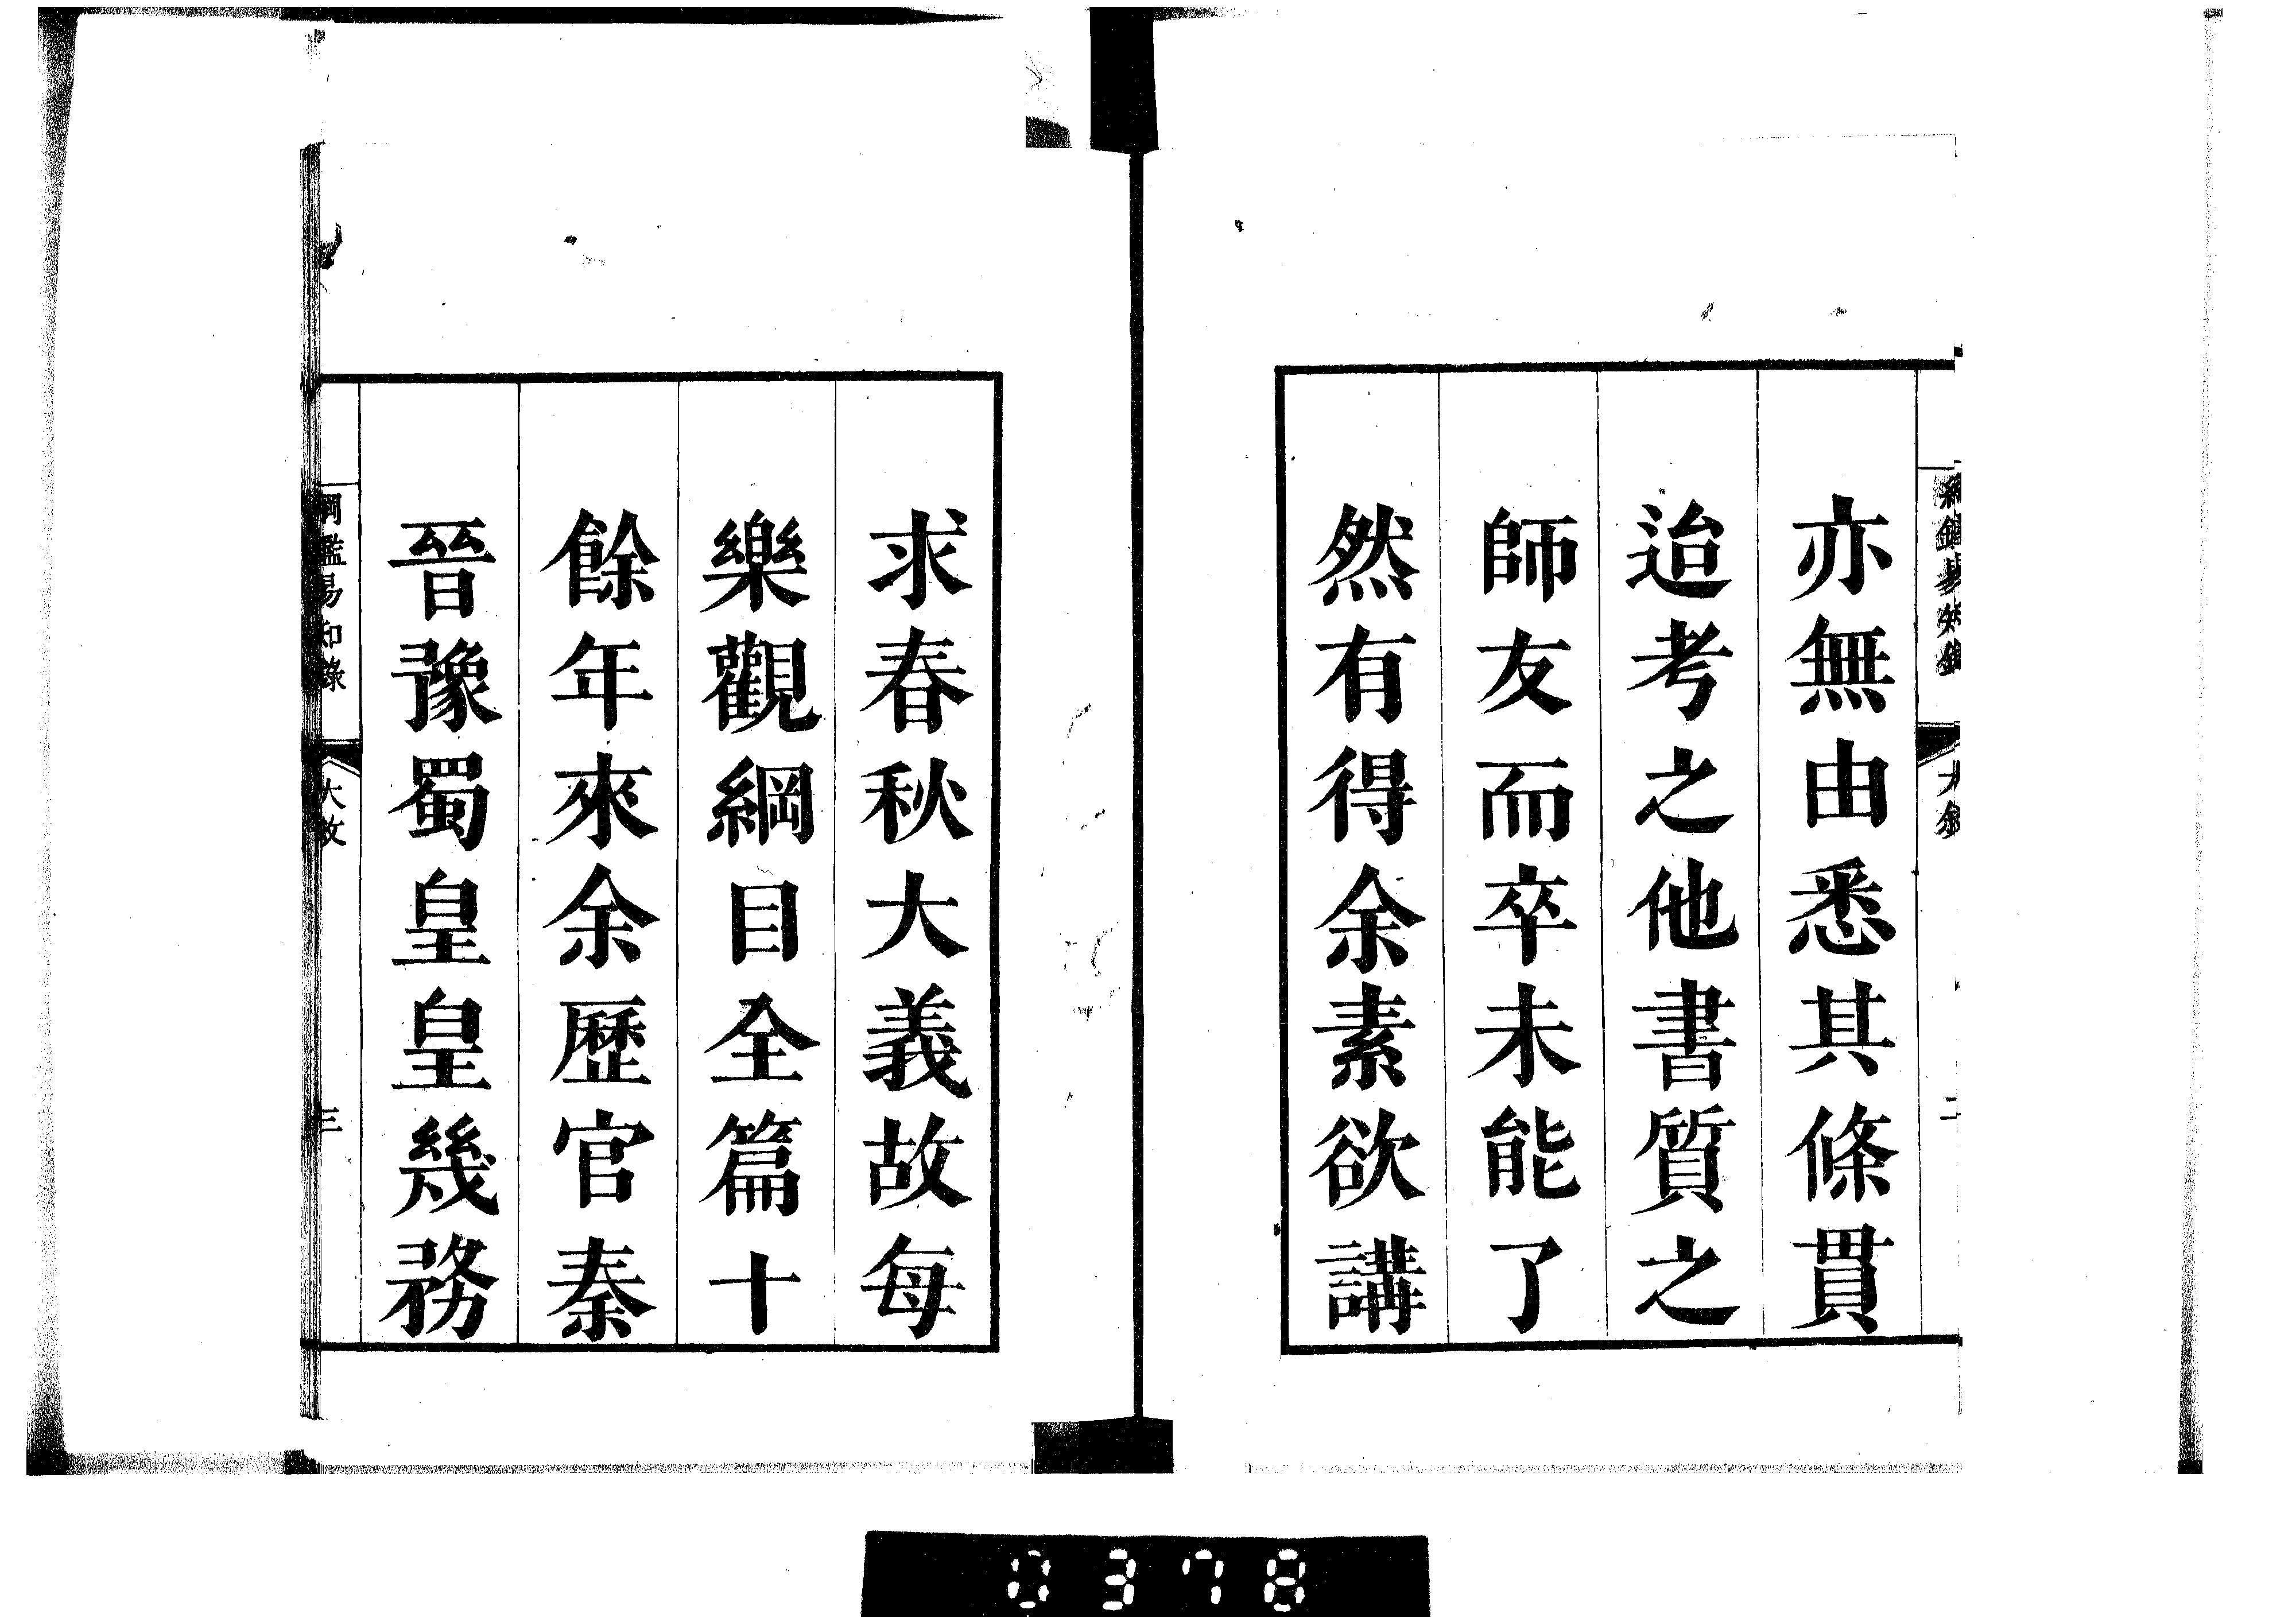 亦無由悉其條貫
迨考之他書質之
師友而卒未能了
然有得余素欲講
求春秋大義故每
樂觀綱目全篇十
餘年來余歷官秦
晉豫蜀皇皇幾務
綱鑑易知錄
三
0378